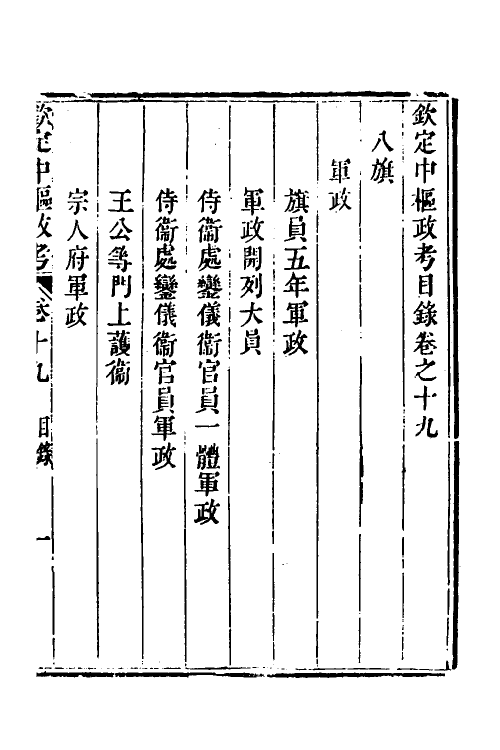 欽定中樞政考目錄卷之十九
八旗
軍政
旗員五年軍政
軍政開列大員
侍衞處鑾儀衞官員一體軍政
侍衞處鑾儀衞官員軍政
王公等門上護衞
宗人府軍政
欽定中樞政考 卷十九 目錄 一